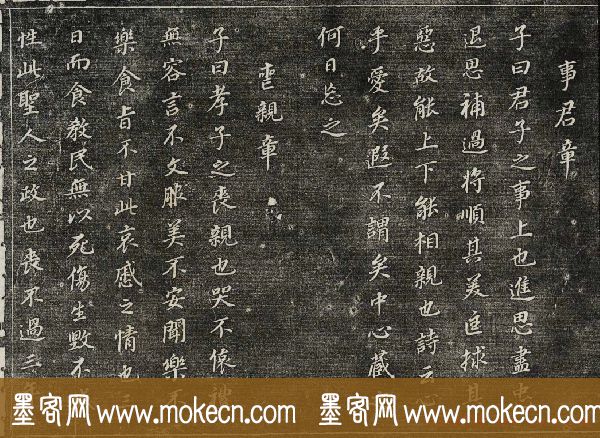 事君章
子曰君子之事上也進思盡忠
退思補過將順其美匡捄其
惡故能上下能相親也詩云心
乎愛矣遐不謂矣中心藏
何日忘之
喪親章
子曰孝子之喪親也哭不偯禮
無容言不文服美不安聞樂不
樂食旨不甘此哀慼之情也三
日而食教民無以死傷生毀不
性此聖人之政也喪不過三年
墨客网 www.mokecn.com 墨客网 www.mokecn.com